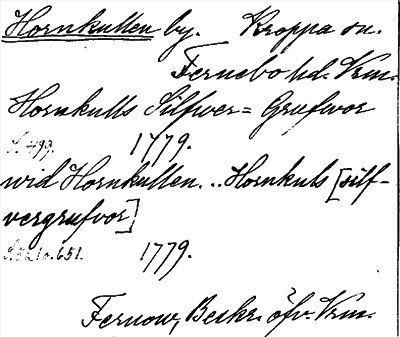 Hornkullen by. Kroppa sn.
Fernebo hd. Vrm.
Hornkulls Silfwer= Grufwor
S. 499. 1779.
wid Hornkullen... Hornkuls [silf-
vergrufvor]
S. 52 10. 651. 1779.
Fernow, Beskr. öfv. Vrm.